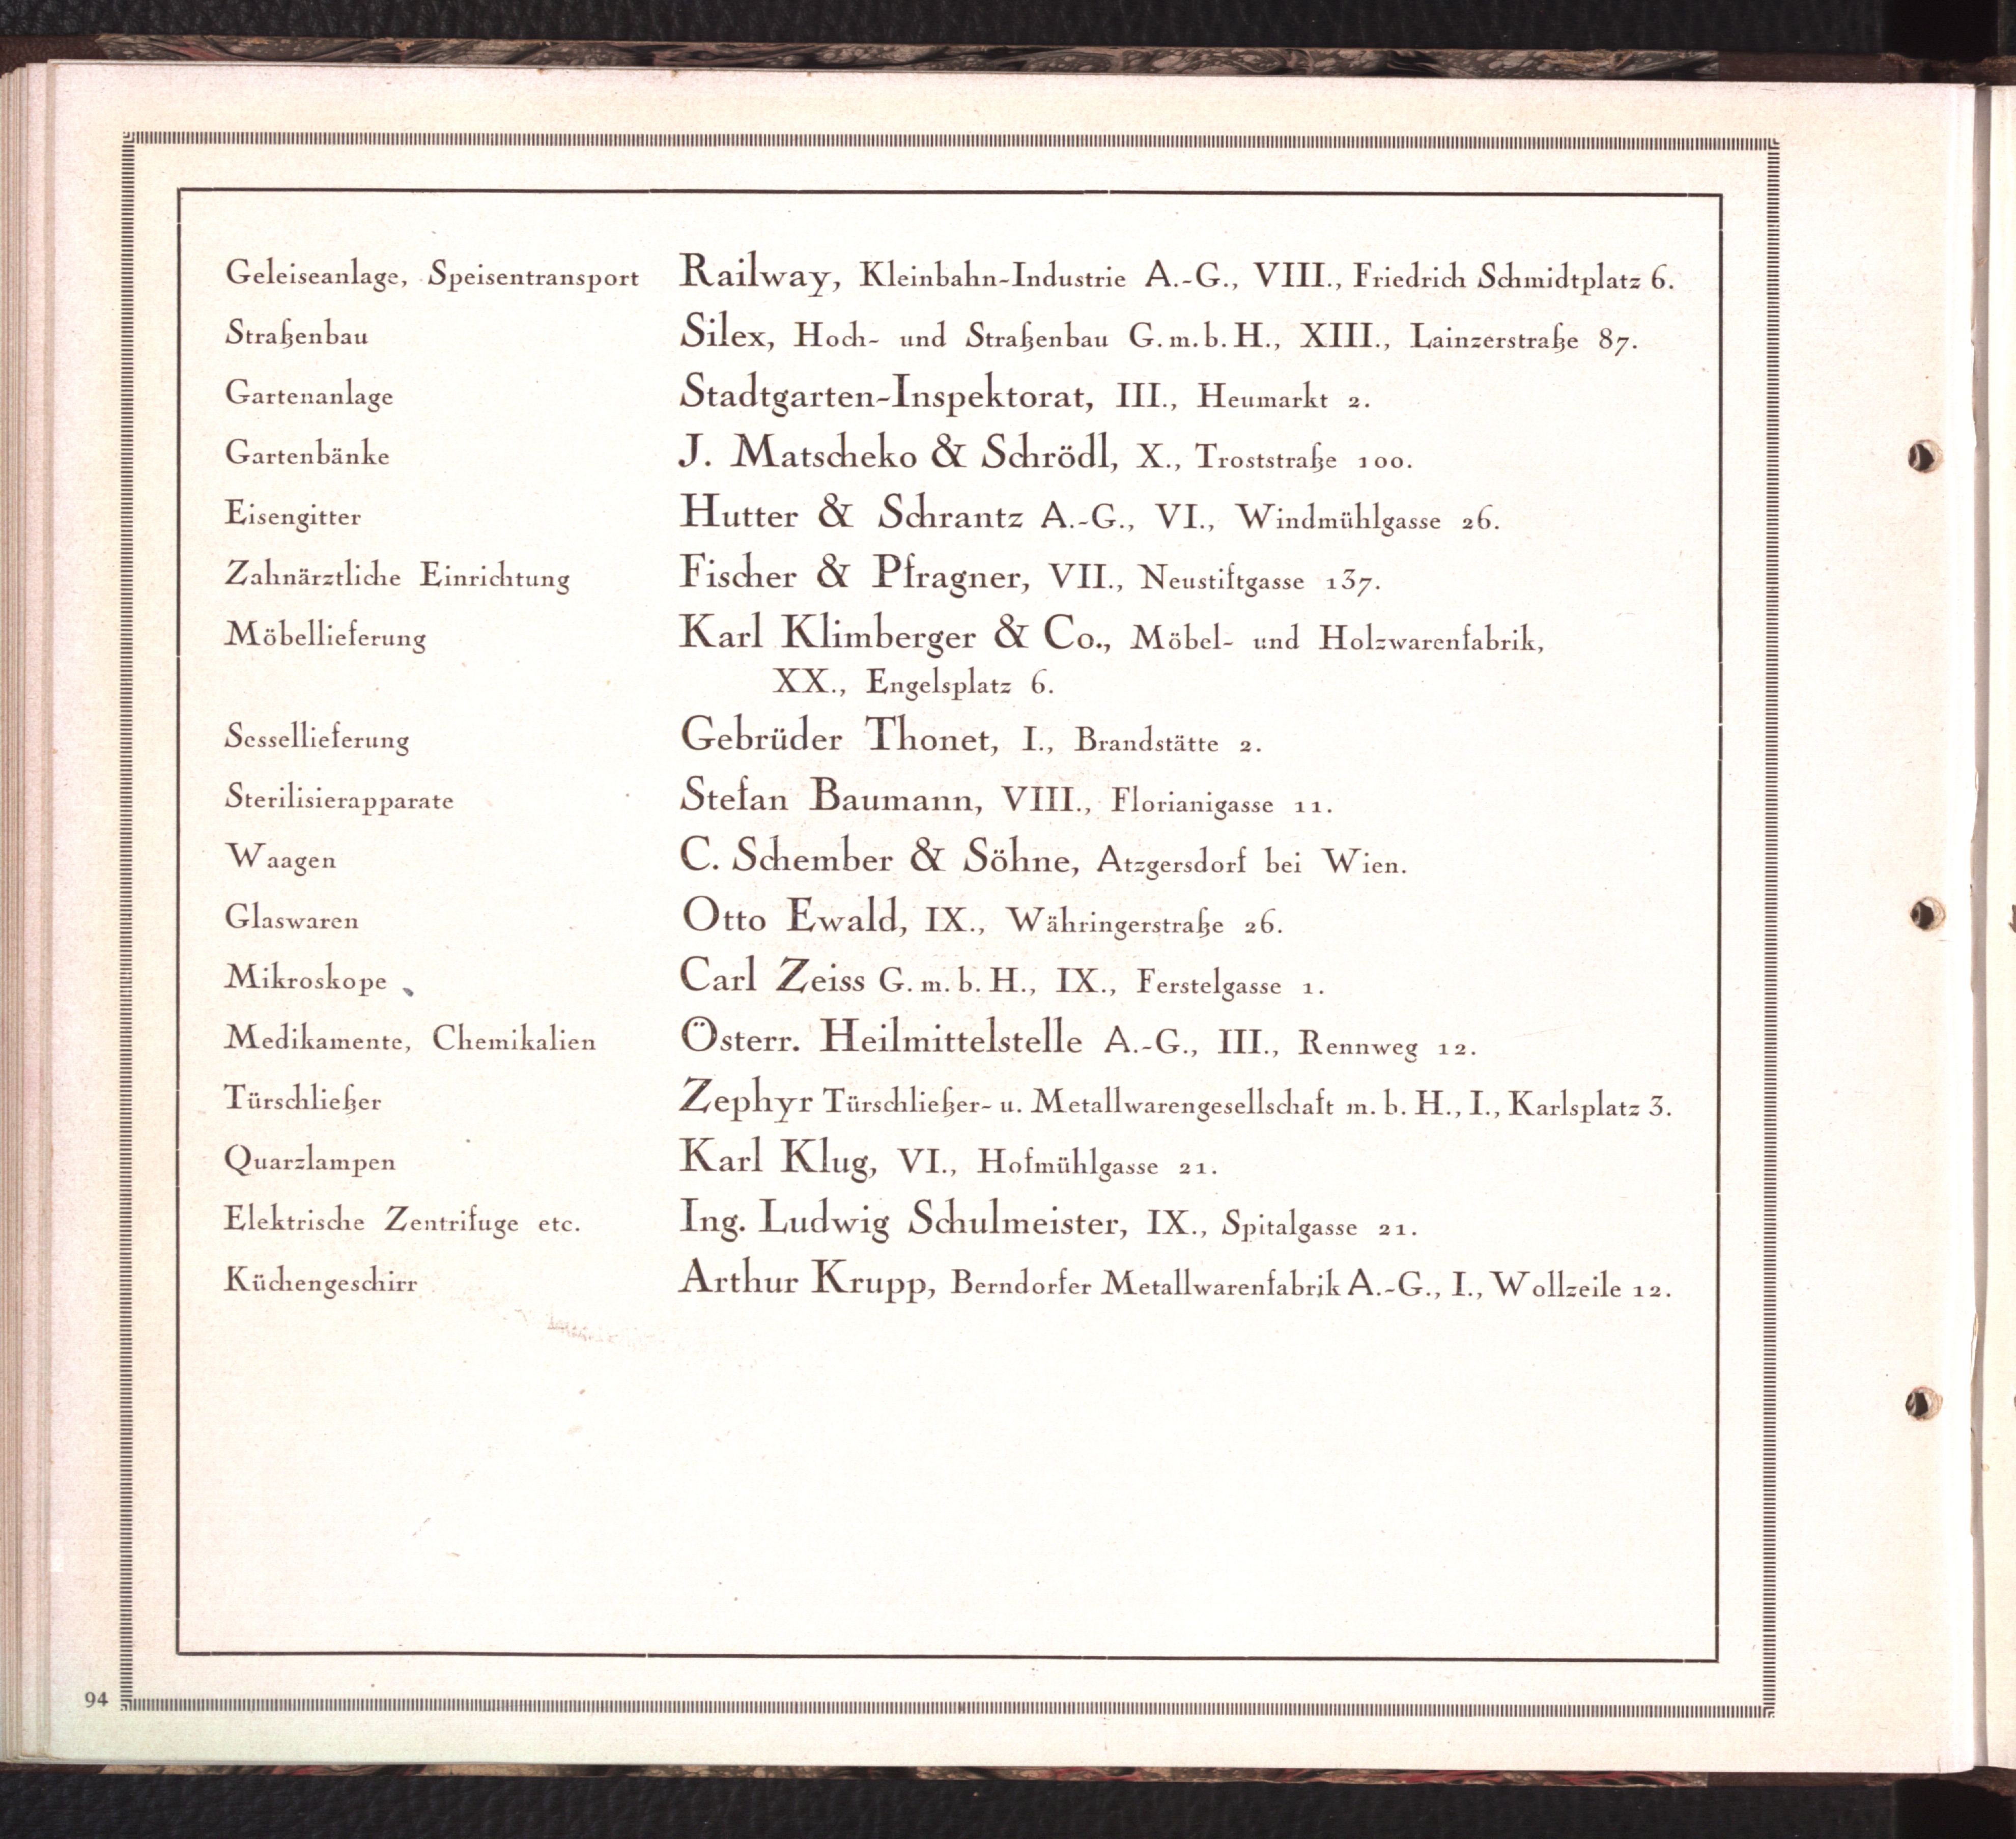 Geleiseanlage, Speisentransport Railway, Kleinbahn-Industrie A.-G., VIII., Friedrich Schmidtplatz 6.
Straßenbau Silex, Hoch- und Straßenbau G. m. b. H., XIII., Lainzerstraße 87.
Gartenanlage Stadtgarten-Inspektorat, III., Heumarkt 2.
Gartenbänke J. Matscheko & Schrödl, X., Troststraße 100.
Eisengitter Hutter & Schrantz A.-G., VI., Windmühlgasse 26.
Zahnärztliche Einrichtung Fischer & Pfragner, VII., Neustiftgasse 137.
Möbellieferung Karl Klimberger & Co., Möbel- und Holzwarenfabrik,
XX., Engelsplatz 6.
Sessellieferung Gebrüder Thonet, I., Brandstätte 2.
Sterilisierapparate Stefan Baumann, VIII., Florianigasse 11.
Waagen C. Schember & Söhne, Atzgersdorf bei Wien.
Glaswaren Otto Ewald, IX., Währingerstraße 26.
Mikroskope Carl Zeiss G. m. b. H., IX., Ferstelgasse 1.
Medikamente, Chemikalien Österr. Heilmittelstelle A.-G., III., Rennweg 12.
Türschließer Zephyr Türschließer- u. Metallwarengesellschaft m. b. H., I., Karlsplatz 3.
Quarzlampen Karl Klug, VI., Hofmühlgasse 21.
Elektrische Zentrifuge etc. Ing. Ludwig Schulmeister, IX., Spitalgasse 21.
Küchengeschirr Arthur Krupp, Berndorfer Metallwarenfabrik A.-G., I., Wollzeile 12.
94